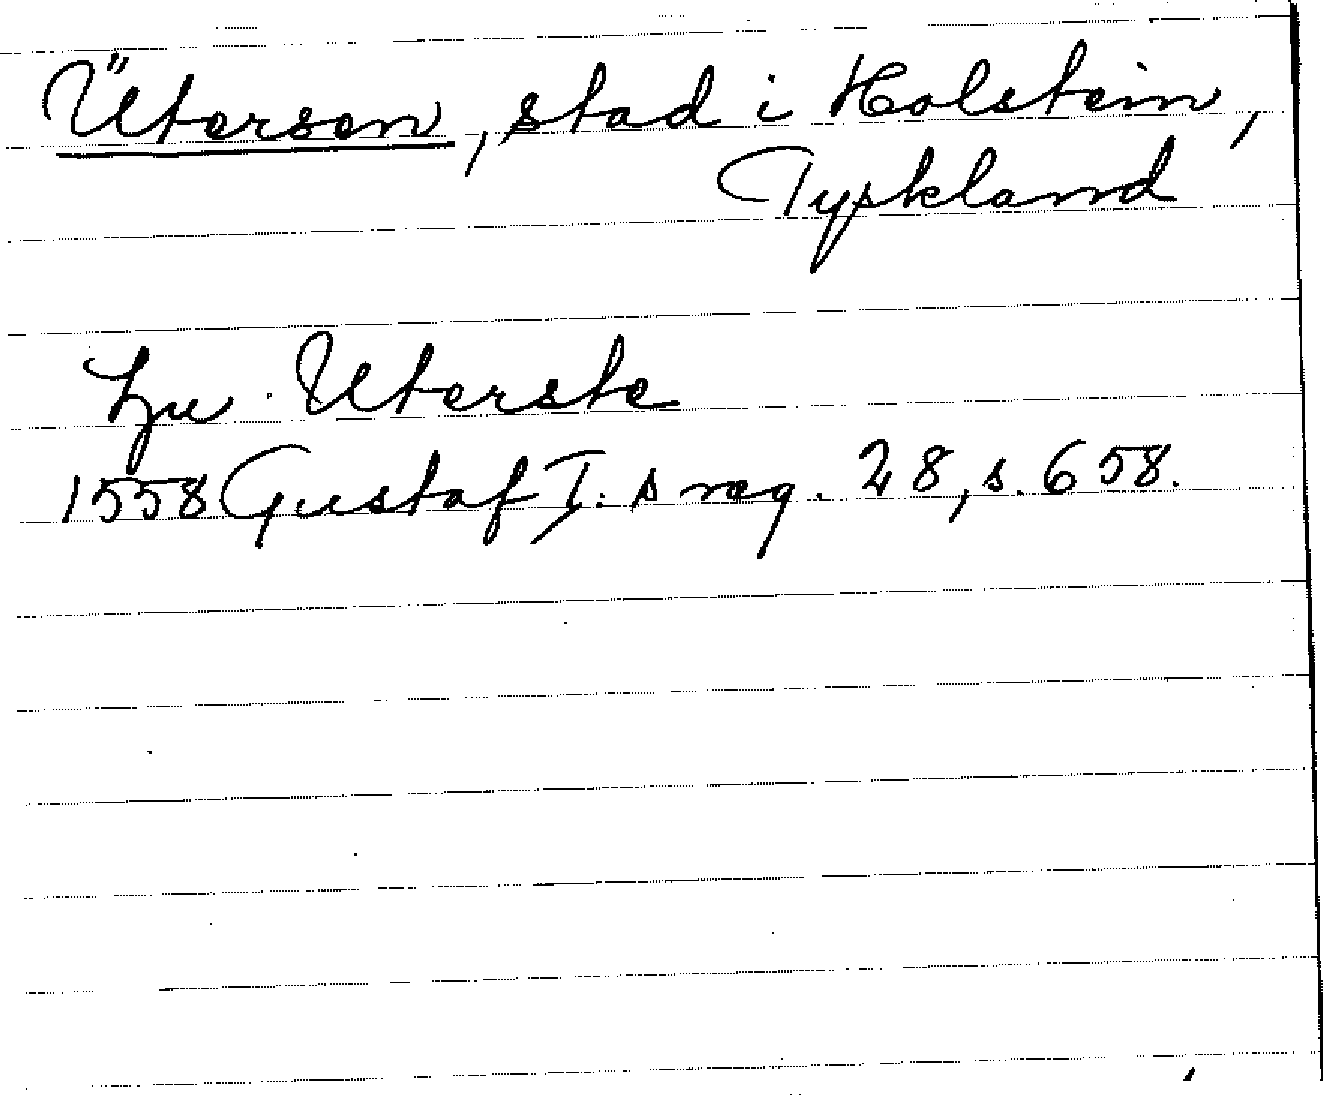 Ütersen, stad i Holstein,
Tyskland
tju Uterste
1558 Gustaf I:s reg. 28, s. 658.